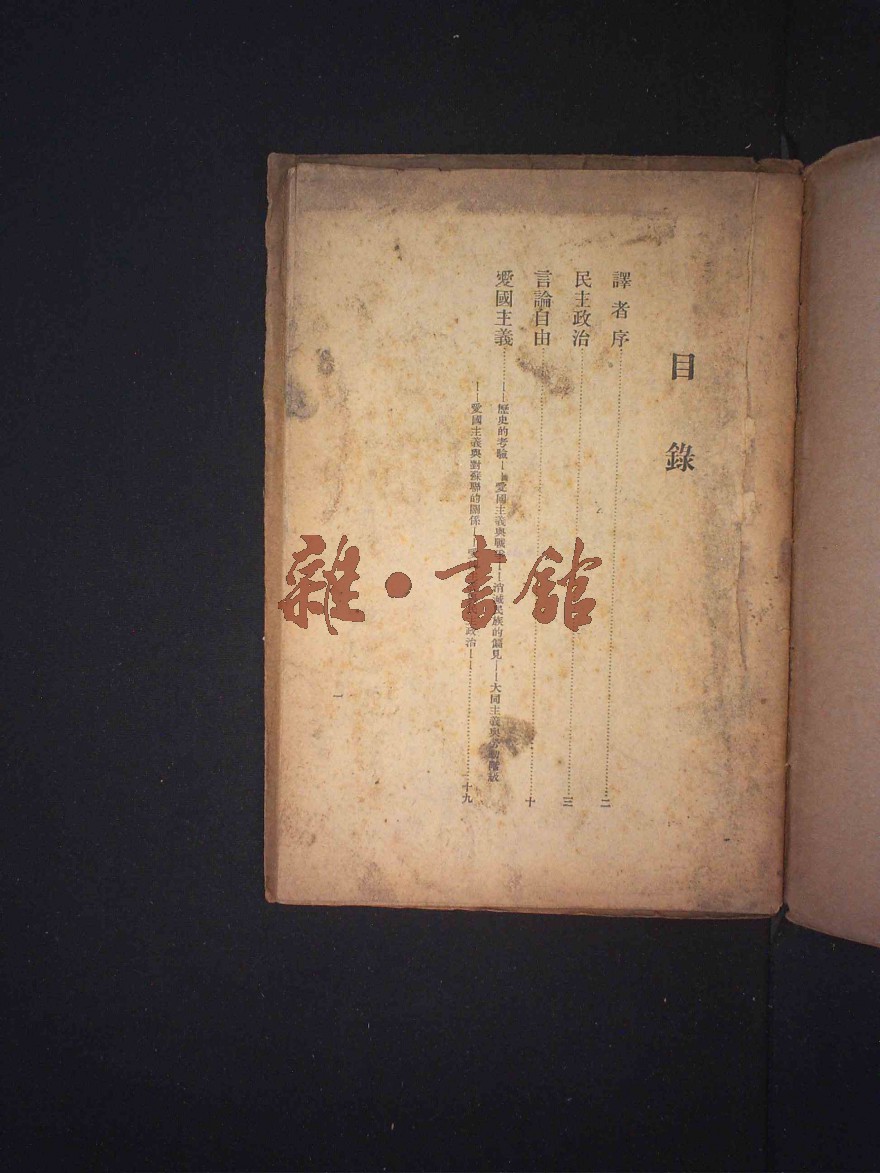 目錄
譯者序……二
民主政治……三
言論自由……十
愛國主義……——歷史的考驗——愛國主義與戰——消滅民族的偏見——大同主義與勞動階級
——愛國主義與對蘇聯的關係——愛政治——……十九
一
雜·書館